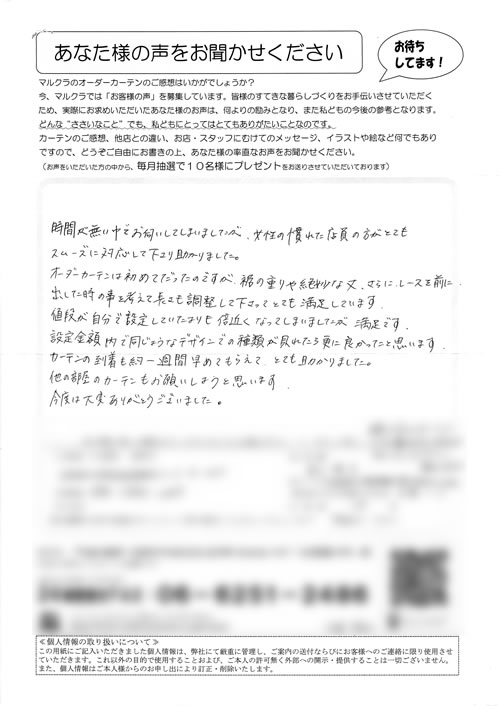 あなた様の声をお聞かせください
お待ち
してます！
マルクラのオーダーカーテンのご感想はいかがでしょうか？
今、マルクラでは「お客様の声」を募集しています。皆様のすてきな暮らしづくりをお手伝いさせていただく
ため、実際にお求めいただいたあなた様のお声は、何よりの励みとなり、また私どもの今後の参考となります。
どんな“ささいなこと”でも、私どもにとってはとてもありがたいことなのです。
カーテンのご感想、他店との違い、お店・スタッフにむけてのメッセージ、イラストや絵など何でもあり
ですので、どうぞご自由にお書きの上、あなた様の率直なお声をお聞かせください。
（お声をいただいた方の中から、毎月抽選で１０名様にプレゼントをお送りさせていただいております）
時間が無い中でお伺いしてしまいましたが、女性の慣れた店員の方がとても
スムーズに対応して下さり助かりました。
オーダーカーテンは初めてだったのですが、裾の重りや絶妙な丈、さらに、レースを前に
出した時の事を考えて長さも調整して下さってとても満足しています。
値段が自分で設定していたよりも倍近くなってしまいましたが満足です。
設定金額内で同じようなデザインでの種類が見れたら更に良かったと思います。
カーテンの到着も約一週間早めてもらえて、とても助かりました。
他の部屋のカーテンもお願いしようと思います。
今度は大変ありがとうございました。
06-6251-2486
≪個人情報の取り扱いについて≫
この用紙にご記入いただきました個人情報は、弊社にて厳重に管理し、ご案内の送付ならびにお客様へのご連絡に限り使用させ
ていただきます。これ以外の目的で使用することおよび、ご本人の許可無く外部への開示・提供することは一切ございません。
また、個人情報はご本人様からのお申し出により訂正・削除いたします。